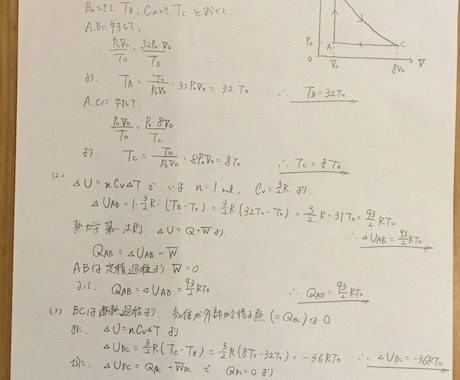 BのときT_B, CのときT_Cとおくと、
A.Bに対して、
P₀V₀/T₀ = 32P₀·V₀/T_B
より T_B = T₀/P₀V₀ · 32P₀V₀ = 32T₀ ∴ T_B = 32T₀
A.Cに対して、
P₀V₀/T₀ = P₀·8V₀/T_C
より T_C = T₀/P₀V₀ · 8P₀V₀ = 8T₀ ∴ T_C = 8T₀
P₀ A C
0 V₀ 8V₀ V
(2) ΔU = nCvΔT で、いま n = 1 mol, Cv = 3/2 R より
ΔU_AB = 1·3/2 R·(T_B-T₀) = 3/2 R(32T₀-T₀) = 3/2 R·31T₀ = 93/2 RT₀
熱力学第一法則 ΔU = Q+W より ∴ ΔU_AB = 93/2 RT₀
Q_AB = ΔU_AB - W
ABは定積過程より W = 0
よって、 Q_AB = ΔU_AB = 93/2 RT₀ ∴ Q_AB = 93/2 RT₀
(3) BCは断熱過程より、気体が外部から得る熱(=Q_BC)は0
また ΔU = nCvΔT より
ΔU_BC = 3/2 R(T_C-T_B) = 3/2 R(8T₀-32T₀) = -36RT₀ ∴ ΔU_BC = -36RT₀
ΔU_BC = Q_BC + W_BC で Q_BC = 0 より